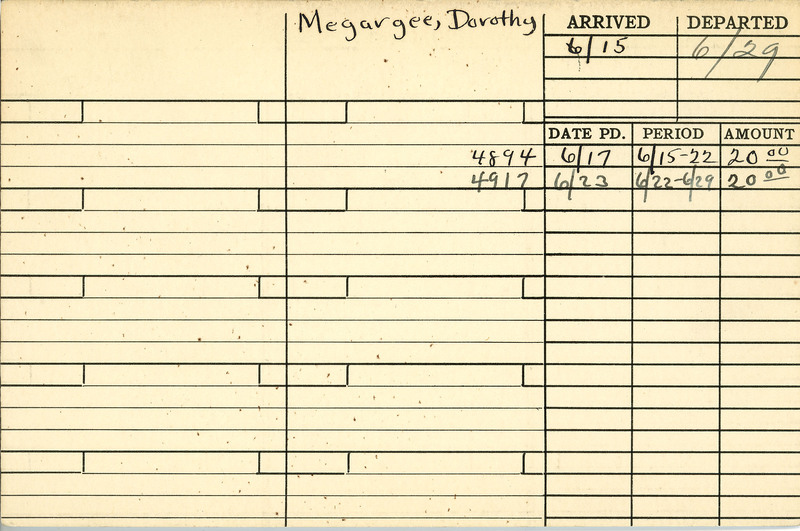 Megargee, Dorothy ARRIVED DEPARTED
6/15 6/29
DATE PD. PERIOD AMOUNT
4894 6/17 6/15-22 20 00
4917 6/23 6/22-6/29 20 00